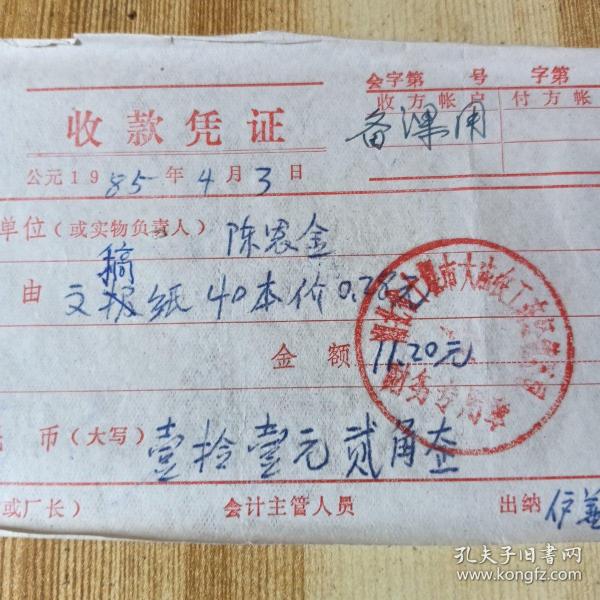 会字第 号 字第
收方帐户 付方帐
备课用
收款凭证
公元1985年4月3日
单位(或实物负责人) 陈农金
稿
由 文报纸 40本价0.28元
金额 11.20元
财务专用章
币(大写) 壹拾壹元贰角
或厂长) 会计主管人员 出纳
孔夫子旧书网
www.kongfz.com